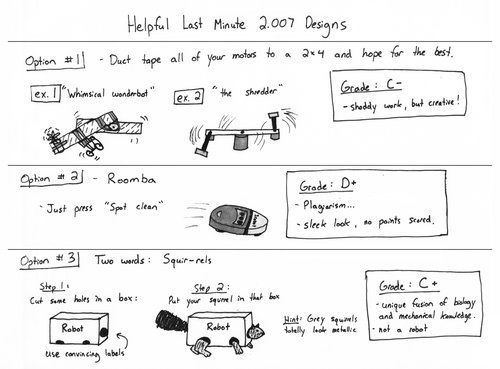 Helpful Last Minute 2.007 Designs
Option #1 - Duct tape all of your motors to a 2x4 and hope for the best.
ex. 1 "Whimsical wonderbot"
ex. 2 "the shredder"
Grade: C-
- shoddy work, but creative!
Option #2 - Roomba
- Just press "Spot clean"
Grade: D+
- Plagiarism...
- sleek look, no points scored.
Option #3 Two words: Squir-rels
Step 1:
Cut some holes in a box:
Robot
Use convincing labels
Step 2:
Put your squirrel in that box
Robot
Hint: Grey squirrels
totally look metallic
Grade: C+
- unique fusion of biology
and mechanical knowledge.
- not a robot